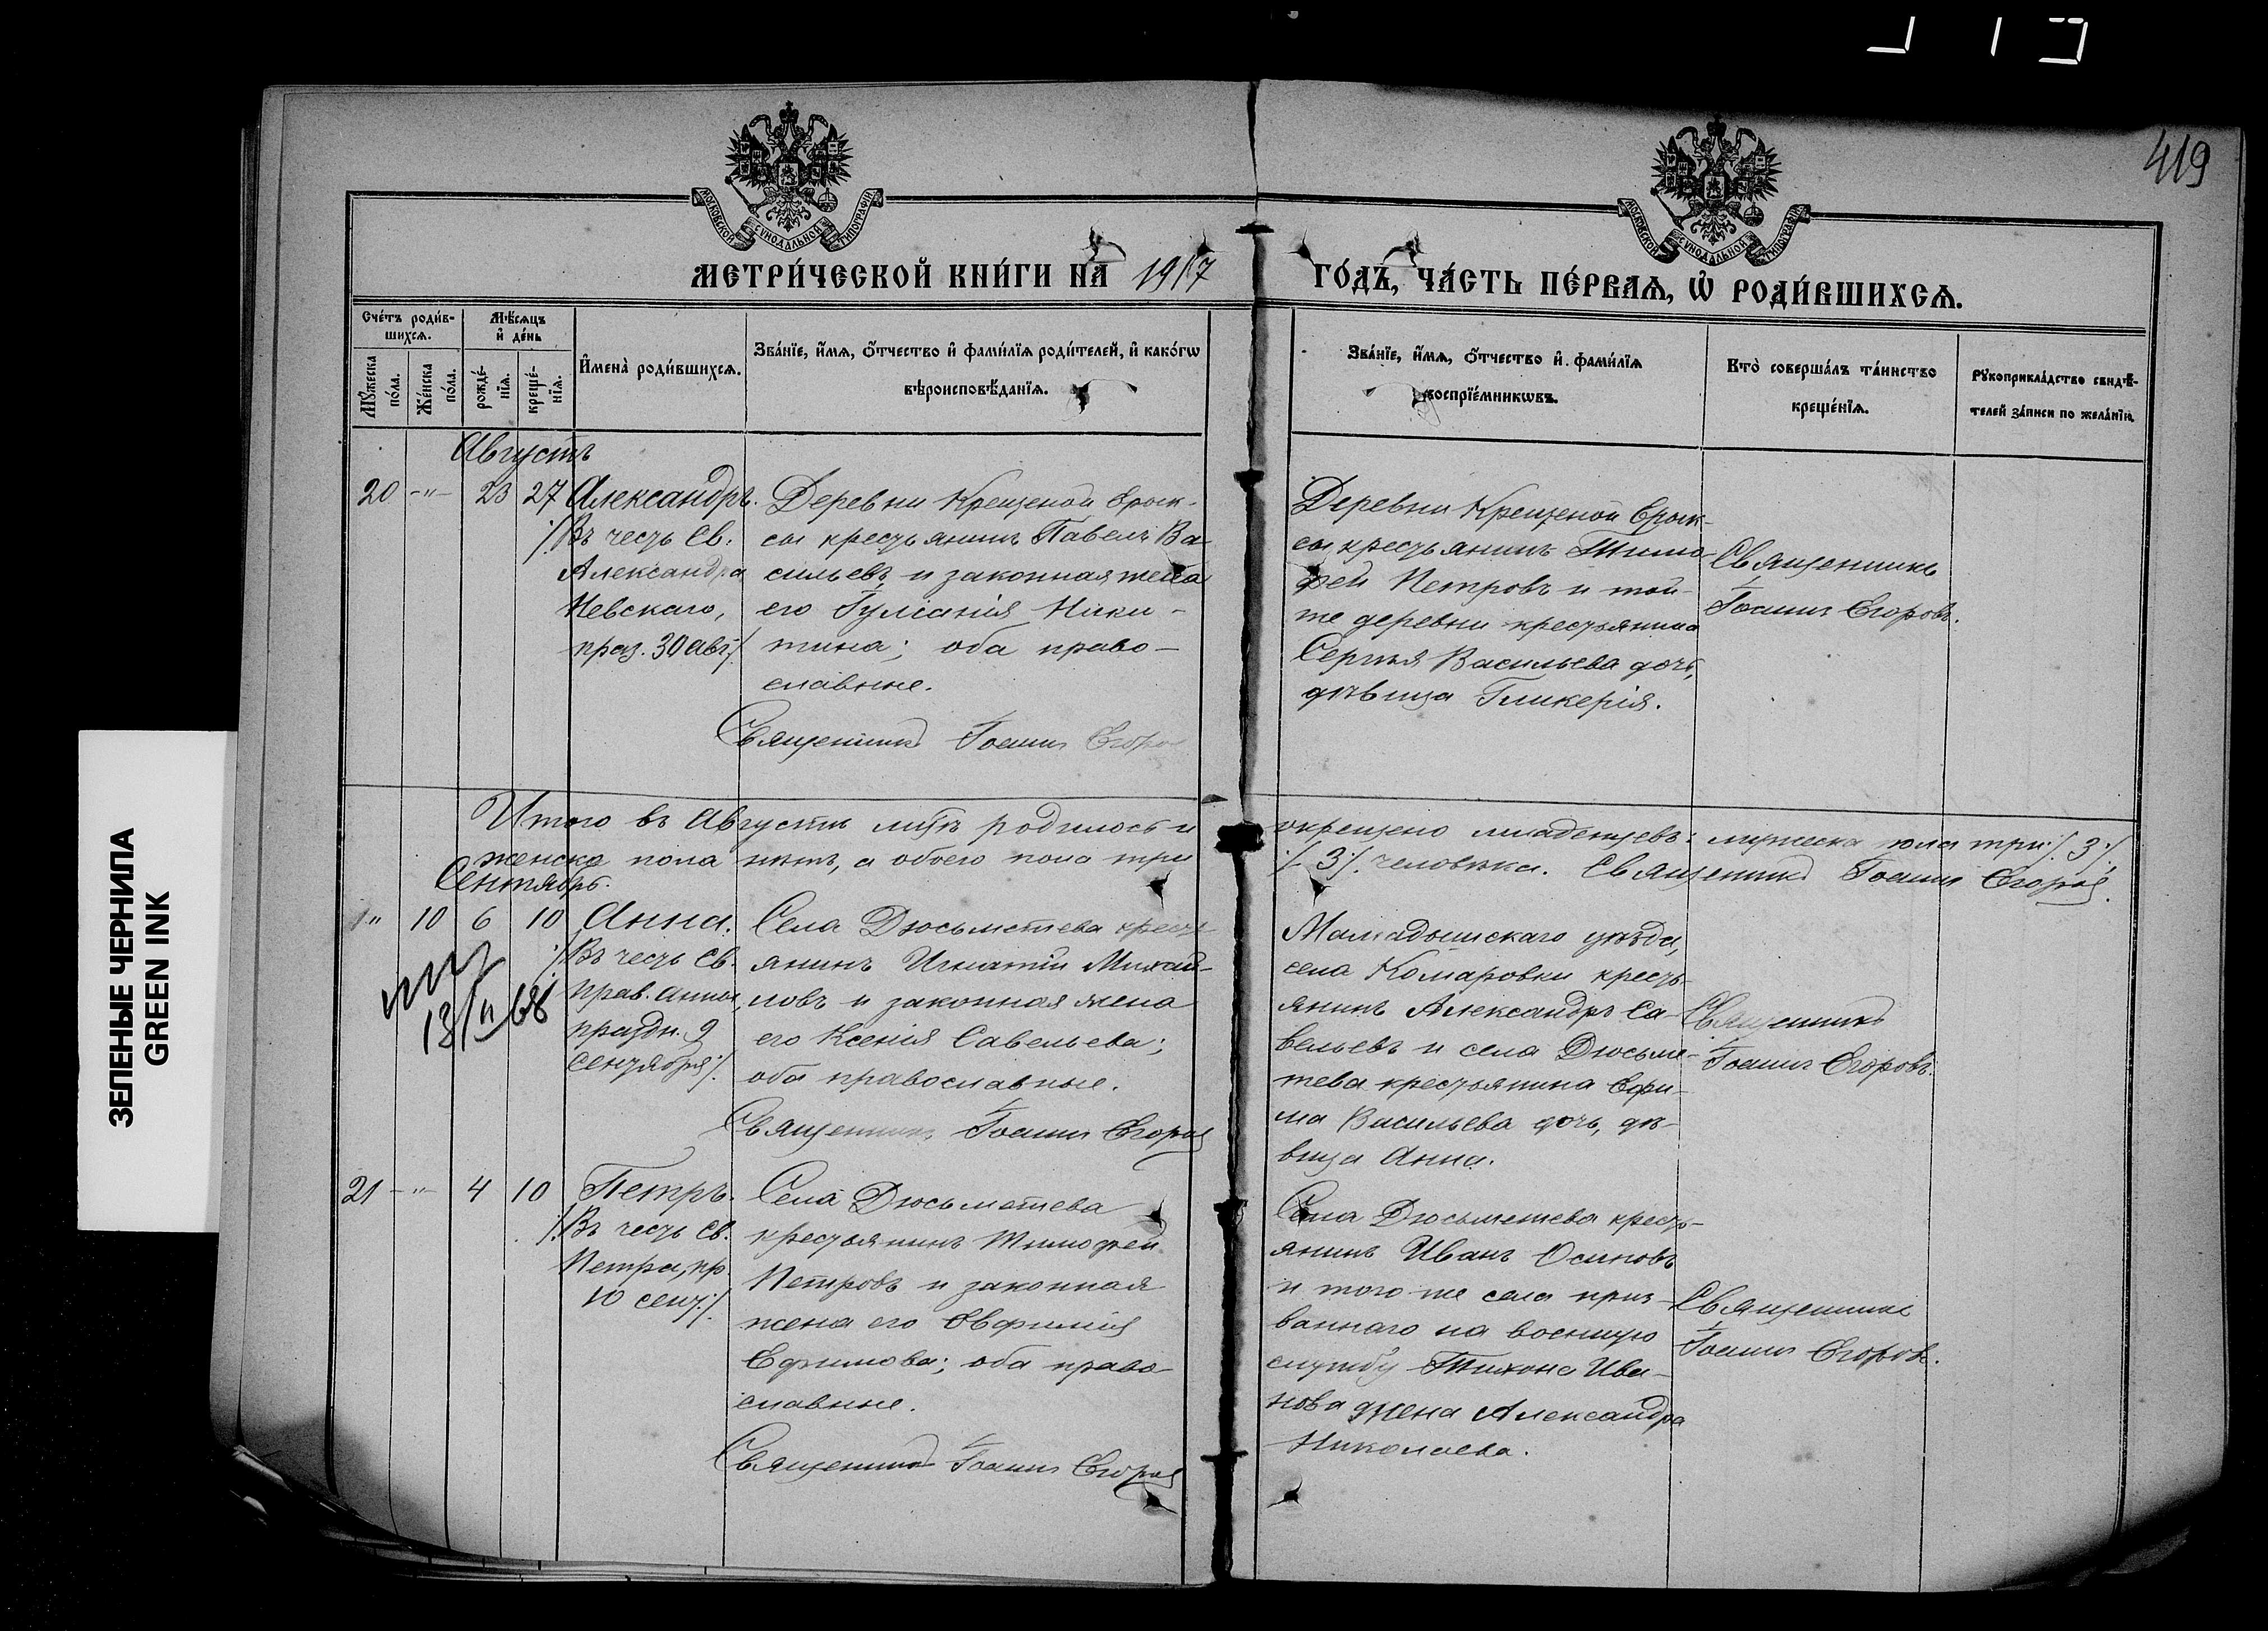 419
МОСКОВСКОЙ СѴНОДАЛЬНОЙ ТИПОГРАФІИ
МОСКОВСКОЙ СѴНОДАЛЬНОЙ ТИПОГРАФІИ
МЕТРИ́ЧЕСКОЙ КНИ́ГИ НА 1917
ГО́ДЪ, ЧА́СТЬ ПЕ́РВАѦ, Ѡ҆ РОДИ́ВШИХСѦ.
Сче́тъ роди́в-
шихсѧ.
Мѣ́сѧцъ
и҆ де́нь
Мꙋ́жеска
по́ла.
Же́нска
по́ла.
рожде́-
нїѧ.
креще́-
нїѧ.
И҆мена̀ роди́вшихсѧ.
Зва́нїе, и҆́мѧ, ѻ҆́тчество и҆ фами́лїѧ роди́телей, и҆ како́гѡ
вѣроисповѣ́данїѧ.
Зва́нїе, и҆́мѧ, ѻ҆́тчество и҆ фами́лїѧ
воспрїе́мникѡвъ.
Кто̀ соверша́лъ та́инство
креще́нїѧ.
Рꙋкоприкла́дство свидѣ́-
телей за́писи по жела́нїю.
Августъ
20 -"- 23 27 Александръ.
/:Въ честь Св.
Александра
Невскаго,
праз. 30 авг:/
Деревни Крещеной Ерык-
сы крестьянинъ Павелъ Ва-
сильевъ и законная жена
его Іуліанія Ники-
тина; оба право-
славные.
Священникъ Іоаннъ Егоровъ
Деревни Крещеной Ерык-
сы крестьянинъ Тимо-
фей Петровъ и той-
же деревни крестьянина
Сергѣя Васильева дочь,
дѣвица Гликерія.
Священникъ
Іоаннъ Егоровъ.
Итого въ Августѣ мѣс. родилось и
окрещено младенцевъ: мужеска пола три /:3:/
женска пола нѣтъ, а обоего пола три
/:3:/ человѣка. Священникъ Іоаннъ Егоровъ.
Сентябрь.
" 10 6 10 Анна.
/:Въ честь Св.
прав. Анны,
праздн. 9
сентября:/.
13/II 68
Села Дюсьметева кресть-
янинъ Игнатій Михай-
ловъ и законная жена
его Ксенія Савельева;
оба православные.
Священникъ Іоаннъ Егоровъ
Мамадышскаго уѣзда,
села Комаровки кресть-
янинъ Александръ Са-
вельевъ и села Дюсьме-
тева крестьянина Ефи-
ма Васильева дочь, дѣ-
вица Анна.
Священникъ
Іоаннъ Егоровъ.
21 -"- 4 10 Петръ.
/:Въ честь Св.
Петра, пр.
10 сент:/.
Села Дюсьметева
крестьянинъ Тимофей
Петровъ и законная
жена его Евфимія
Ефимова; оба право-
славные.
Священникъ Іоаннъ Егоровъ
Села Дюсьметева кресть-
янинъ Иванъ Осиповъ
и того же села приз-
ваннаго на военную
службу Тихона Ива-
нова жена Александра
Николаева.
Священникъ
Іоаннъ Егоровъ.
ЗЕЛЕНЫЕ ЧЕРНИЛА
GREEN INK